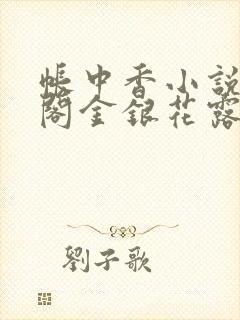 帳中香小說
閣金銀花露
劉子歌